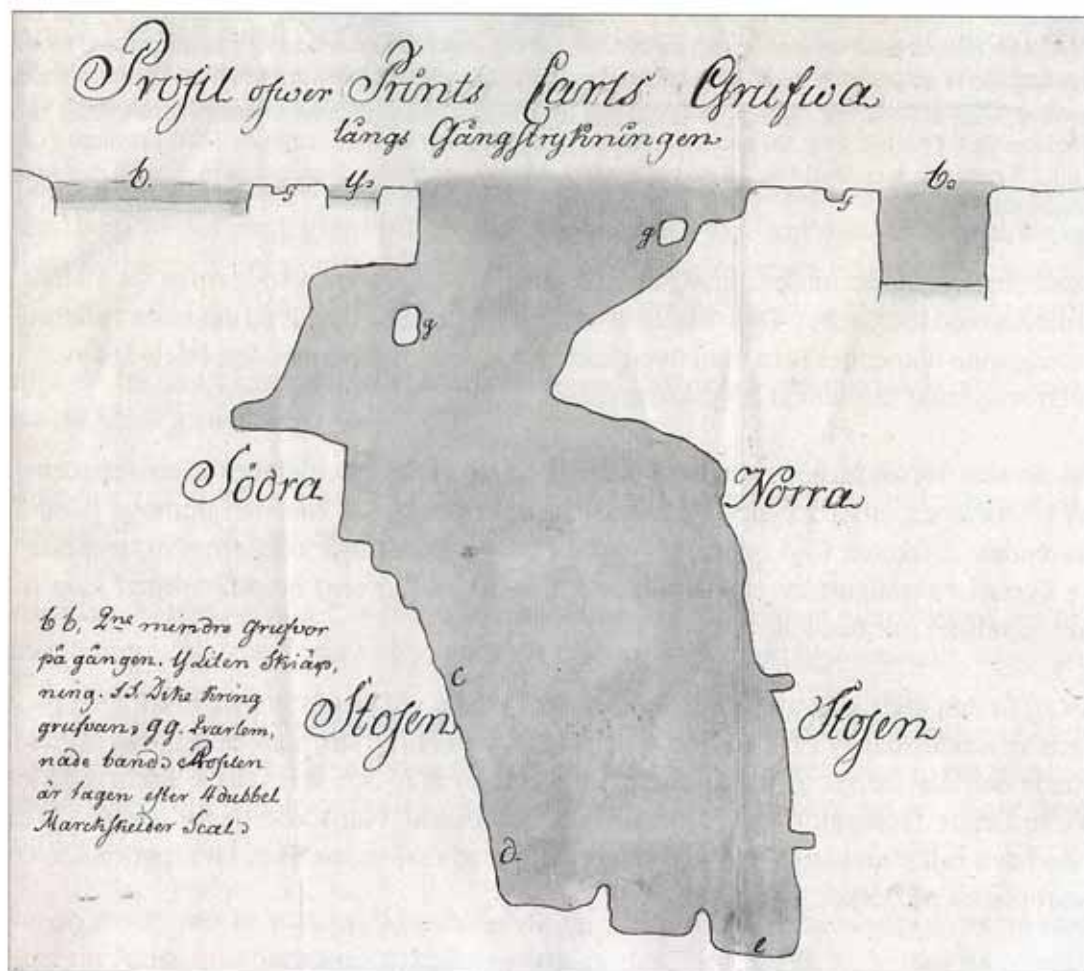 Profil ofwer Prints Carls Grufwa
längs Gångstrykningen
b. y. b.
f f
g
g
Södra Norra
c
Stosen Stosen
d.
e
bb, 2ne mindre grufvor
på gången. y Liten Skiärp,
ning. f.f. Dike kring
grufvan, gg. qvarlem,
nade band, Profilen
är tagen efter 4 dubbel
Marckskeider Scal,